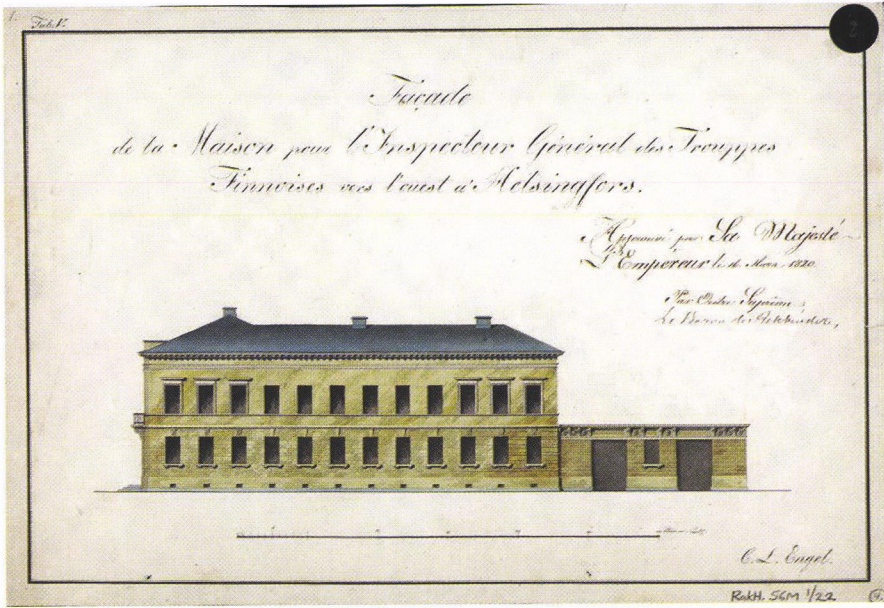 1.
Tab. V.
2
Façade
de la Maison pour l'Inspecteur Général des Trouppes
Finnoises vers l'ouest à Helsingfors.
Approuvé par Sa Majesté
L'Empereur le 1820
Par Ordre Suprème
Le Baron de
C. L. Engel.
RakH. SGM 1/22